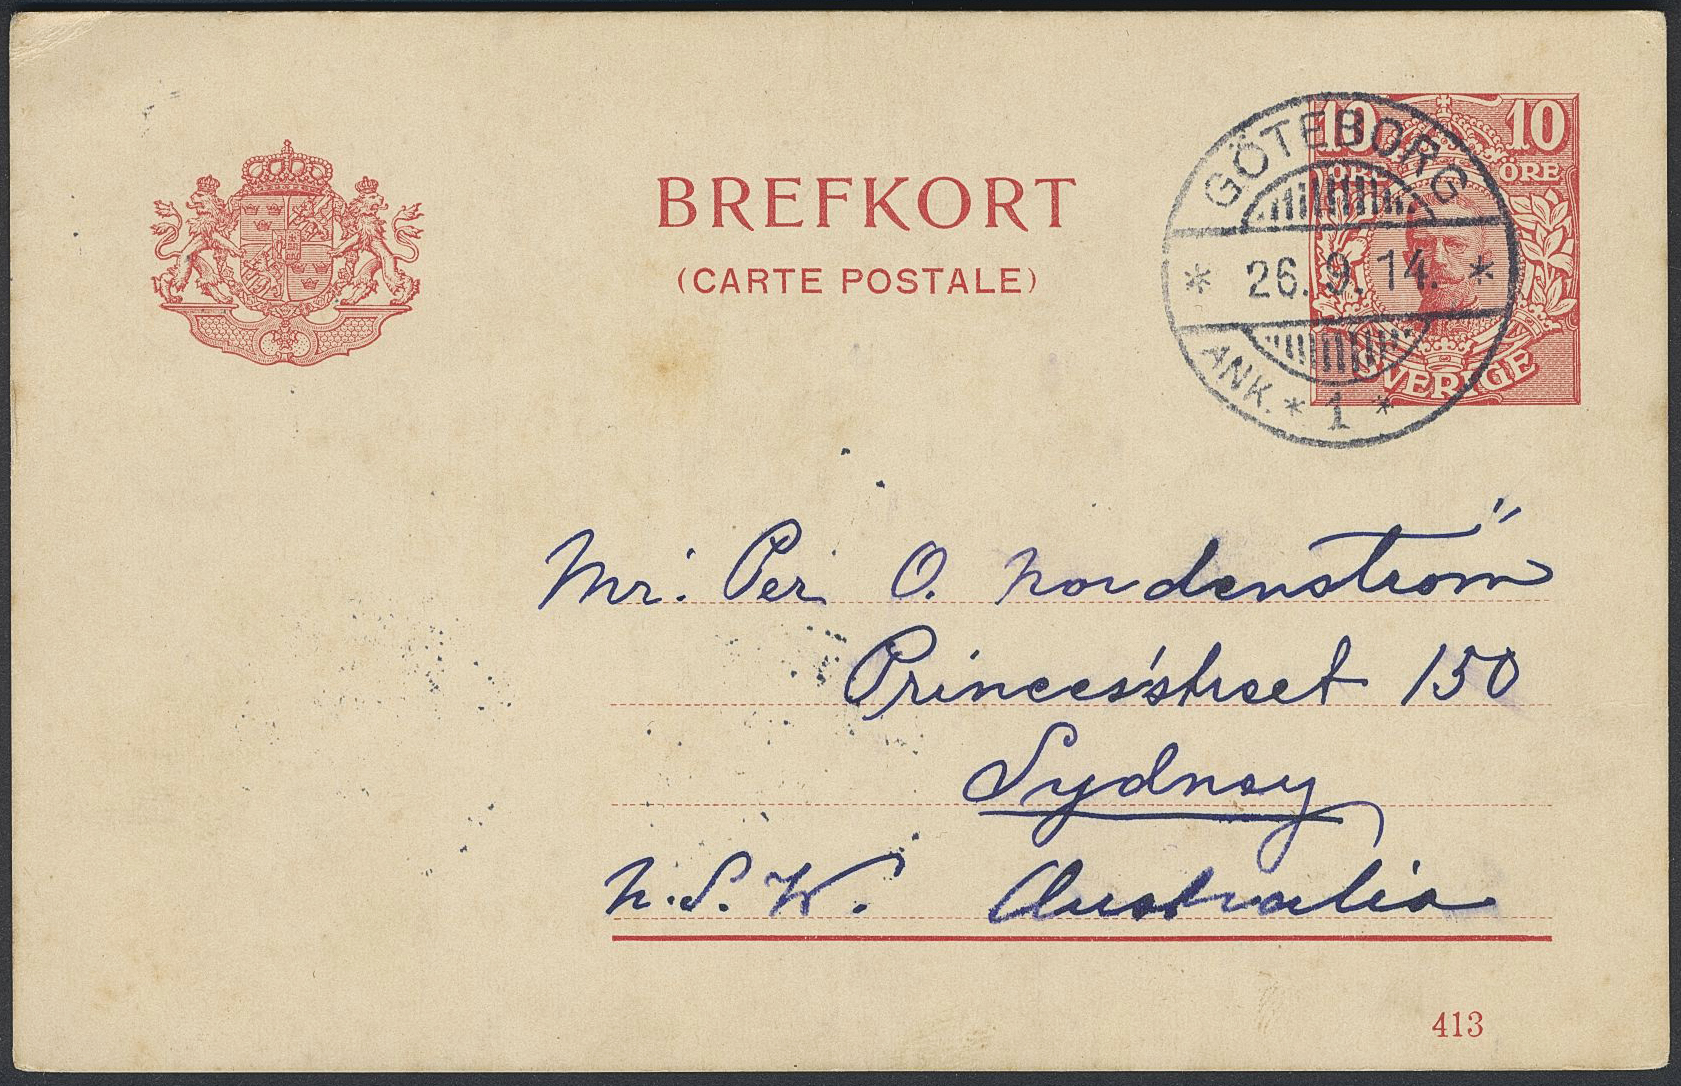 BREFKORT
(CARTE POSTALE)
10 10
ÖRE ÖRE
SVERIGE
GÖTEBORG
* 26.9.14. *
ANK. * 1 *
Mr: Per O. Nordenström
Princes'street 150
Sydney
N.S.W. Australia
413